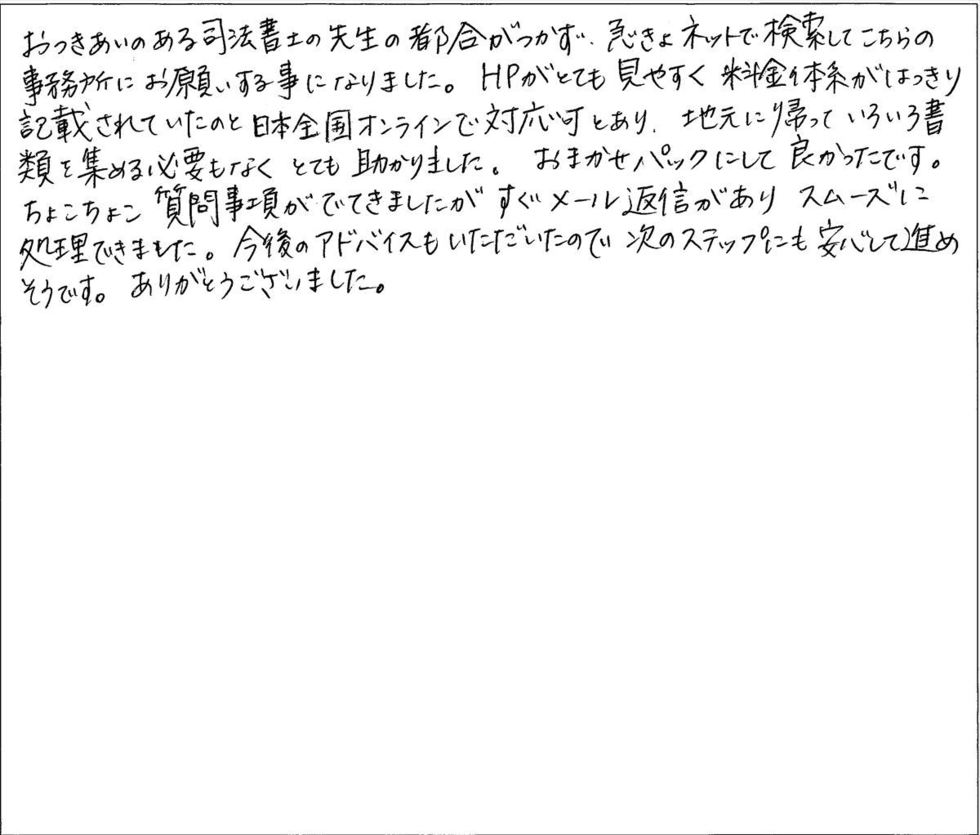 おつきあいのある司法書士の先生の都合がつかず、急きょネットで検索してこちらの
事務所にお願いする事になりました。HPがとても見やすく料金体系がはっきり
記載されていたのと日本全国オンラインで対応可とあり、地元に帰っていろいろ書
類を集める必要もなくとても助かりました。おまかせパックにして良かったです。
ちょこちょこ質問事項がでてきましたがすぐメール返信がありスムーズに
処理できました。今後のアドバイスもいただいたので次のステップにも安心して進め
そうです。ありがとうございました。